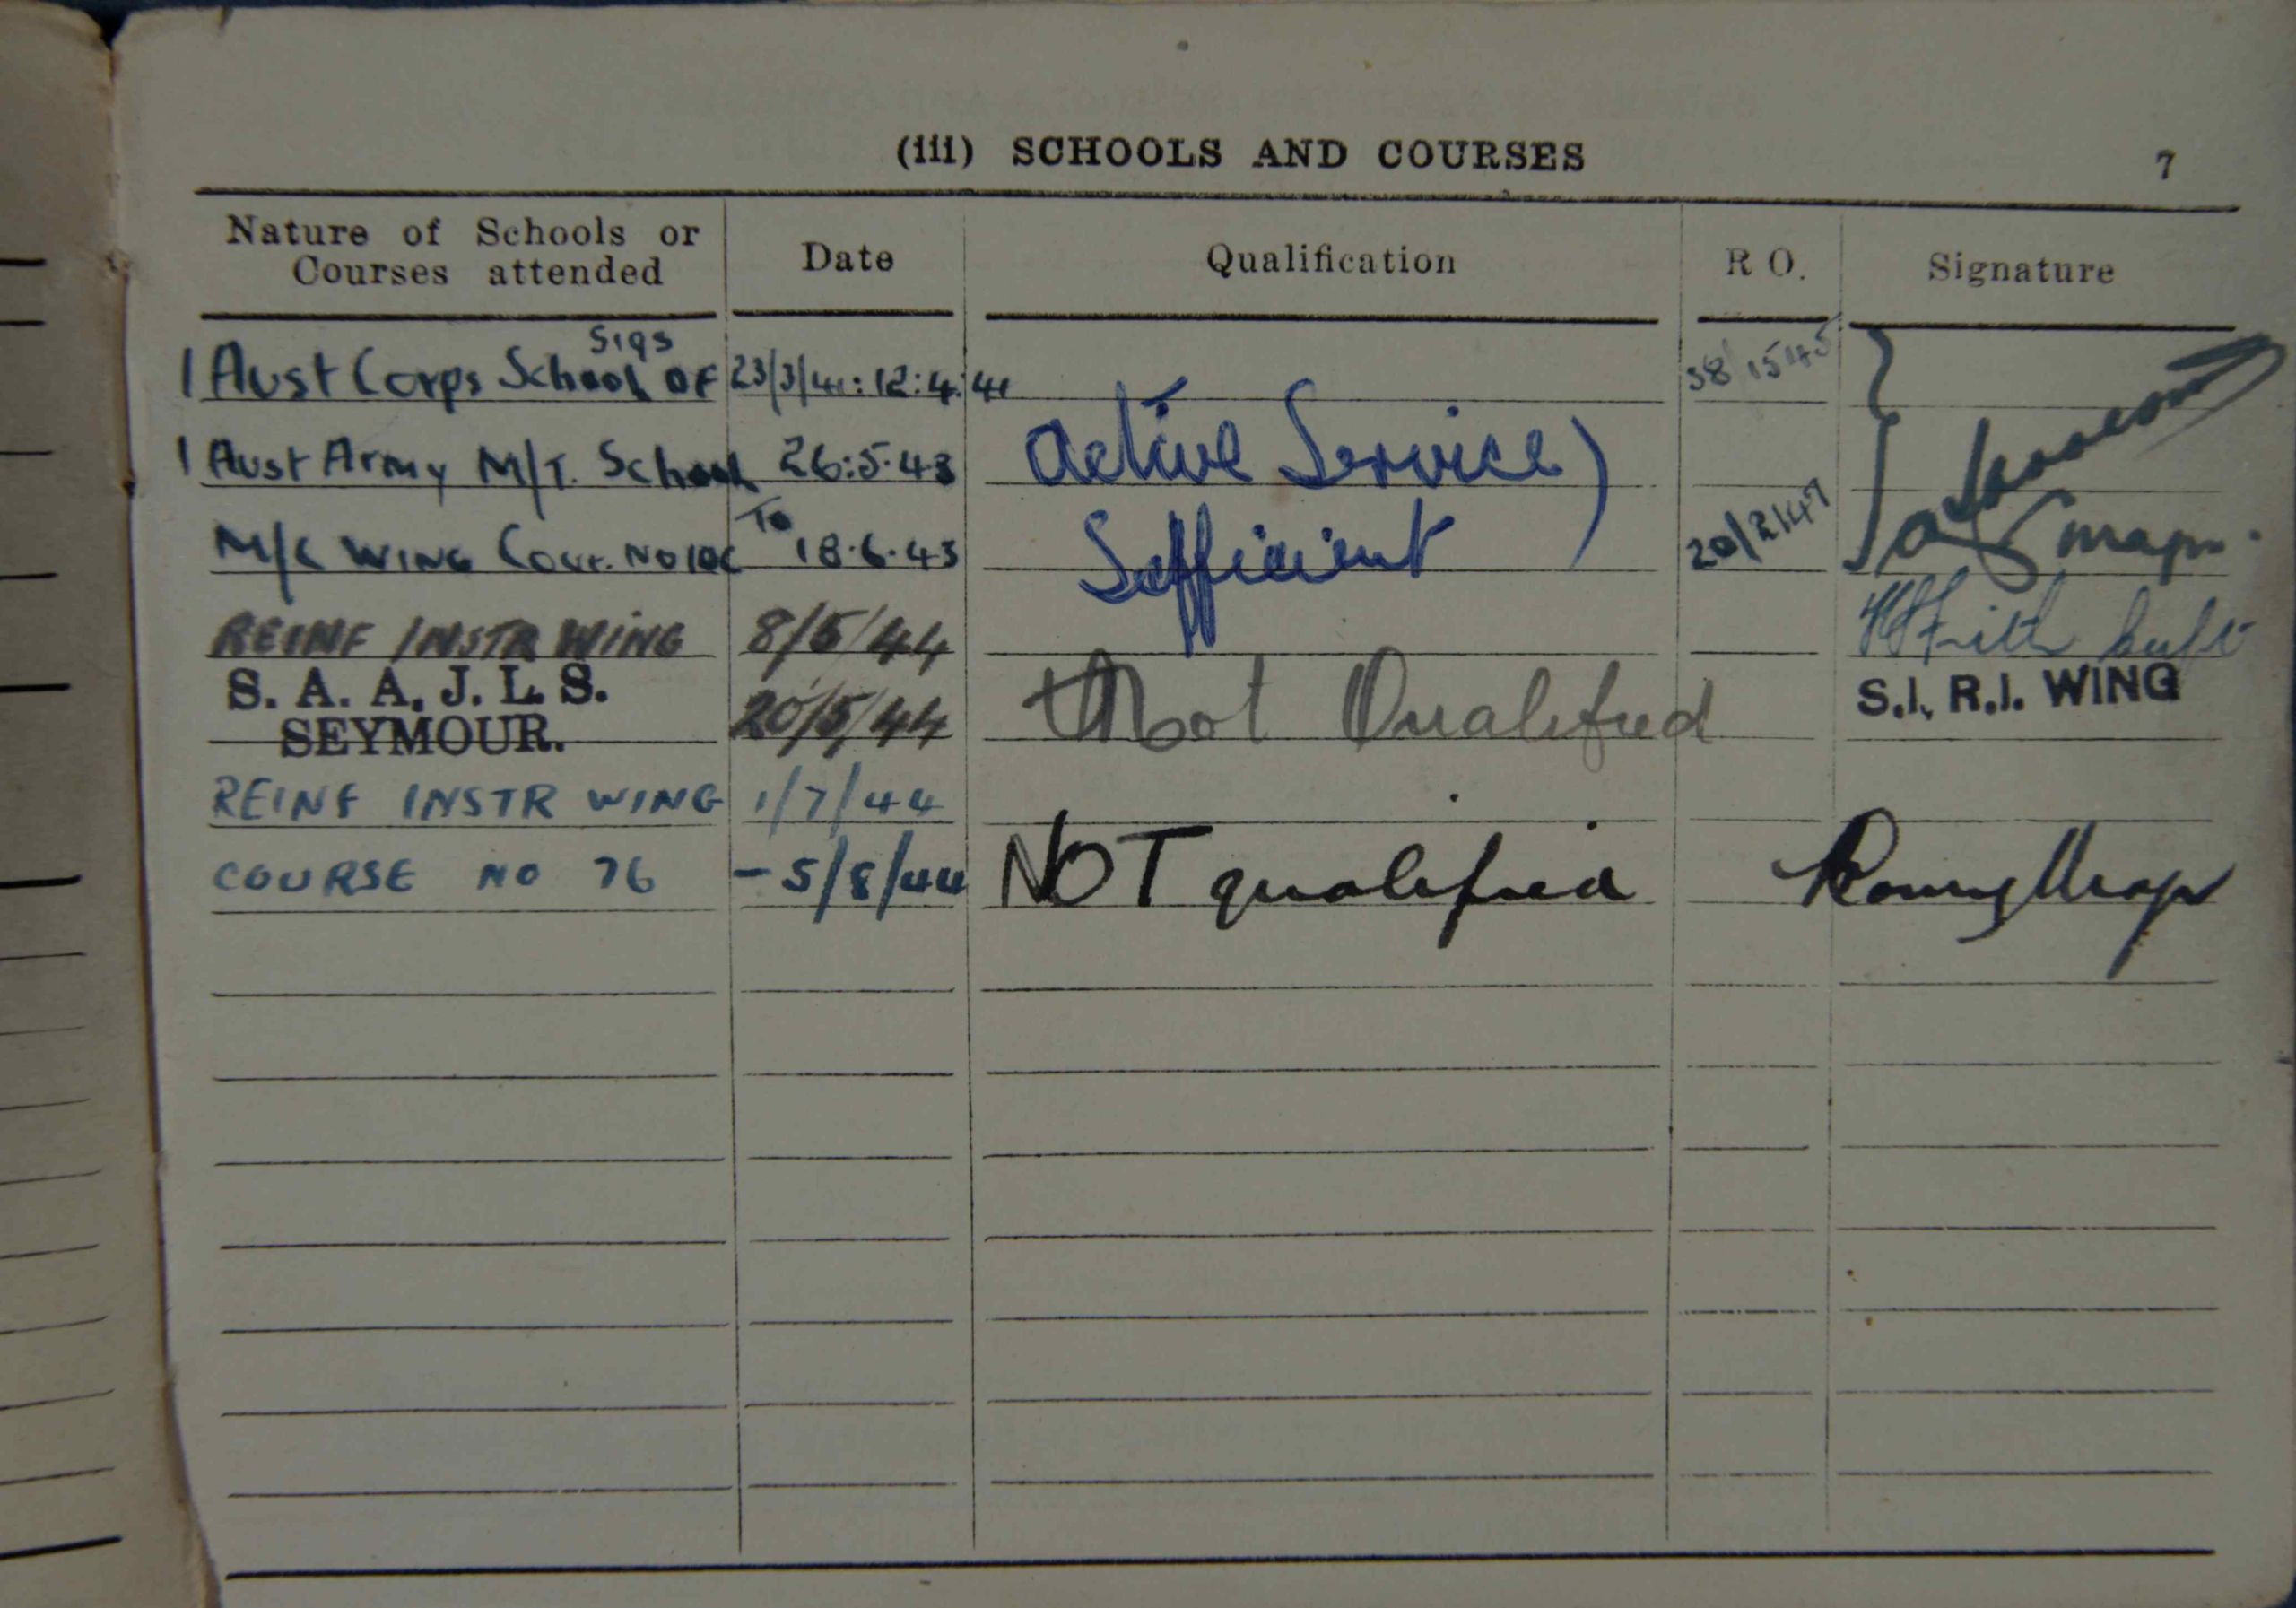 (iii) SCHOOLS AND COURSES 7
Nature of Schools or Courses attended Date Qualification R O. Signature
Sigs
1 Aust Corps School OF 23/3/41: 12:4:41 38/1545
1 Aust Army M/T. School 26:5.43 Active Service)
To
M/C WING Cour. No 18.6.43 Sufficient 20/2/47 Capn.
REINF INSTR WING 8/5/44
S. A. A. J. L. S. 20/5/44 Not Qualified S.I. R.I. WING
SEYMOUR.
REINF INSTR WING 1/7/44
COURSE NO 76 -5/8/44 NOT qualified